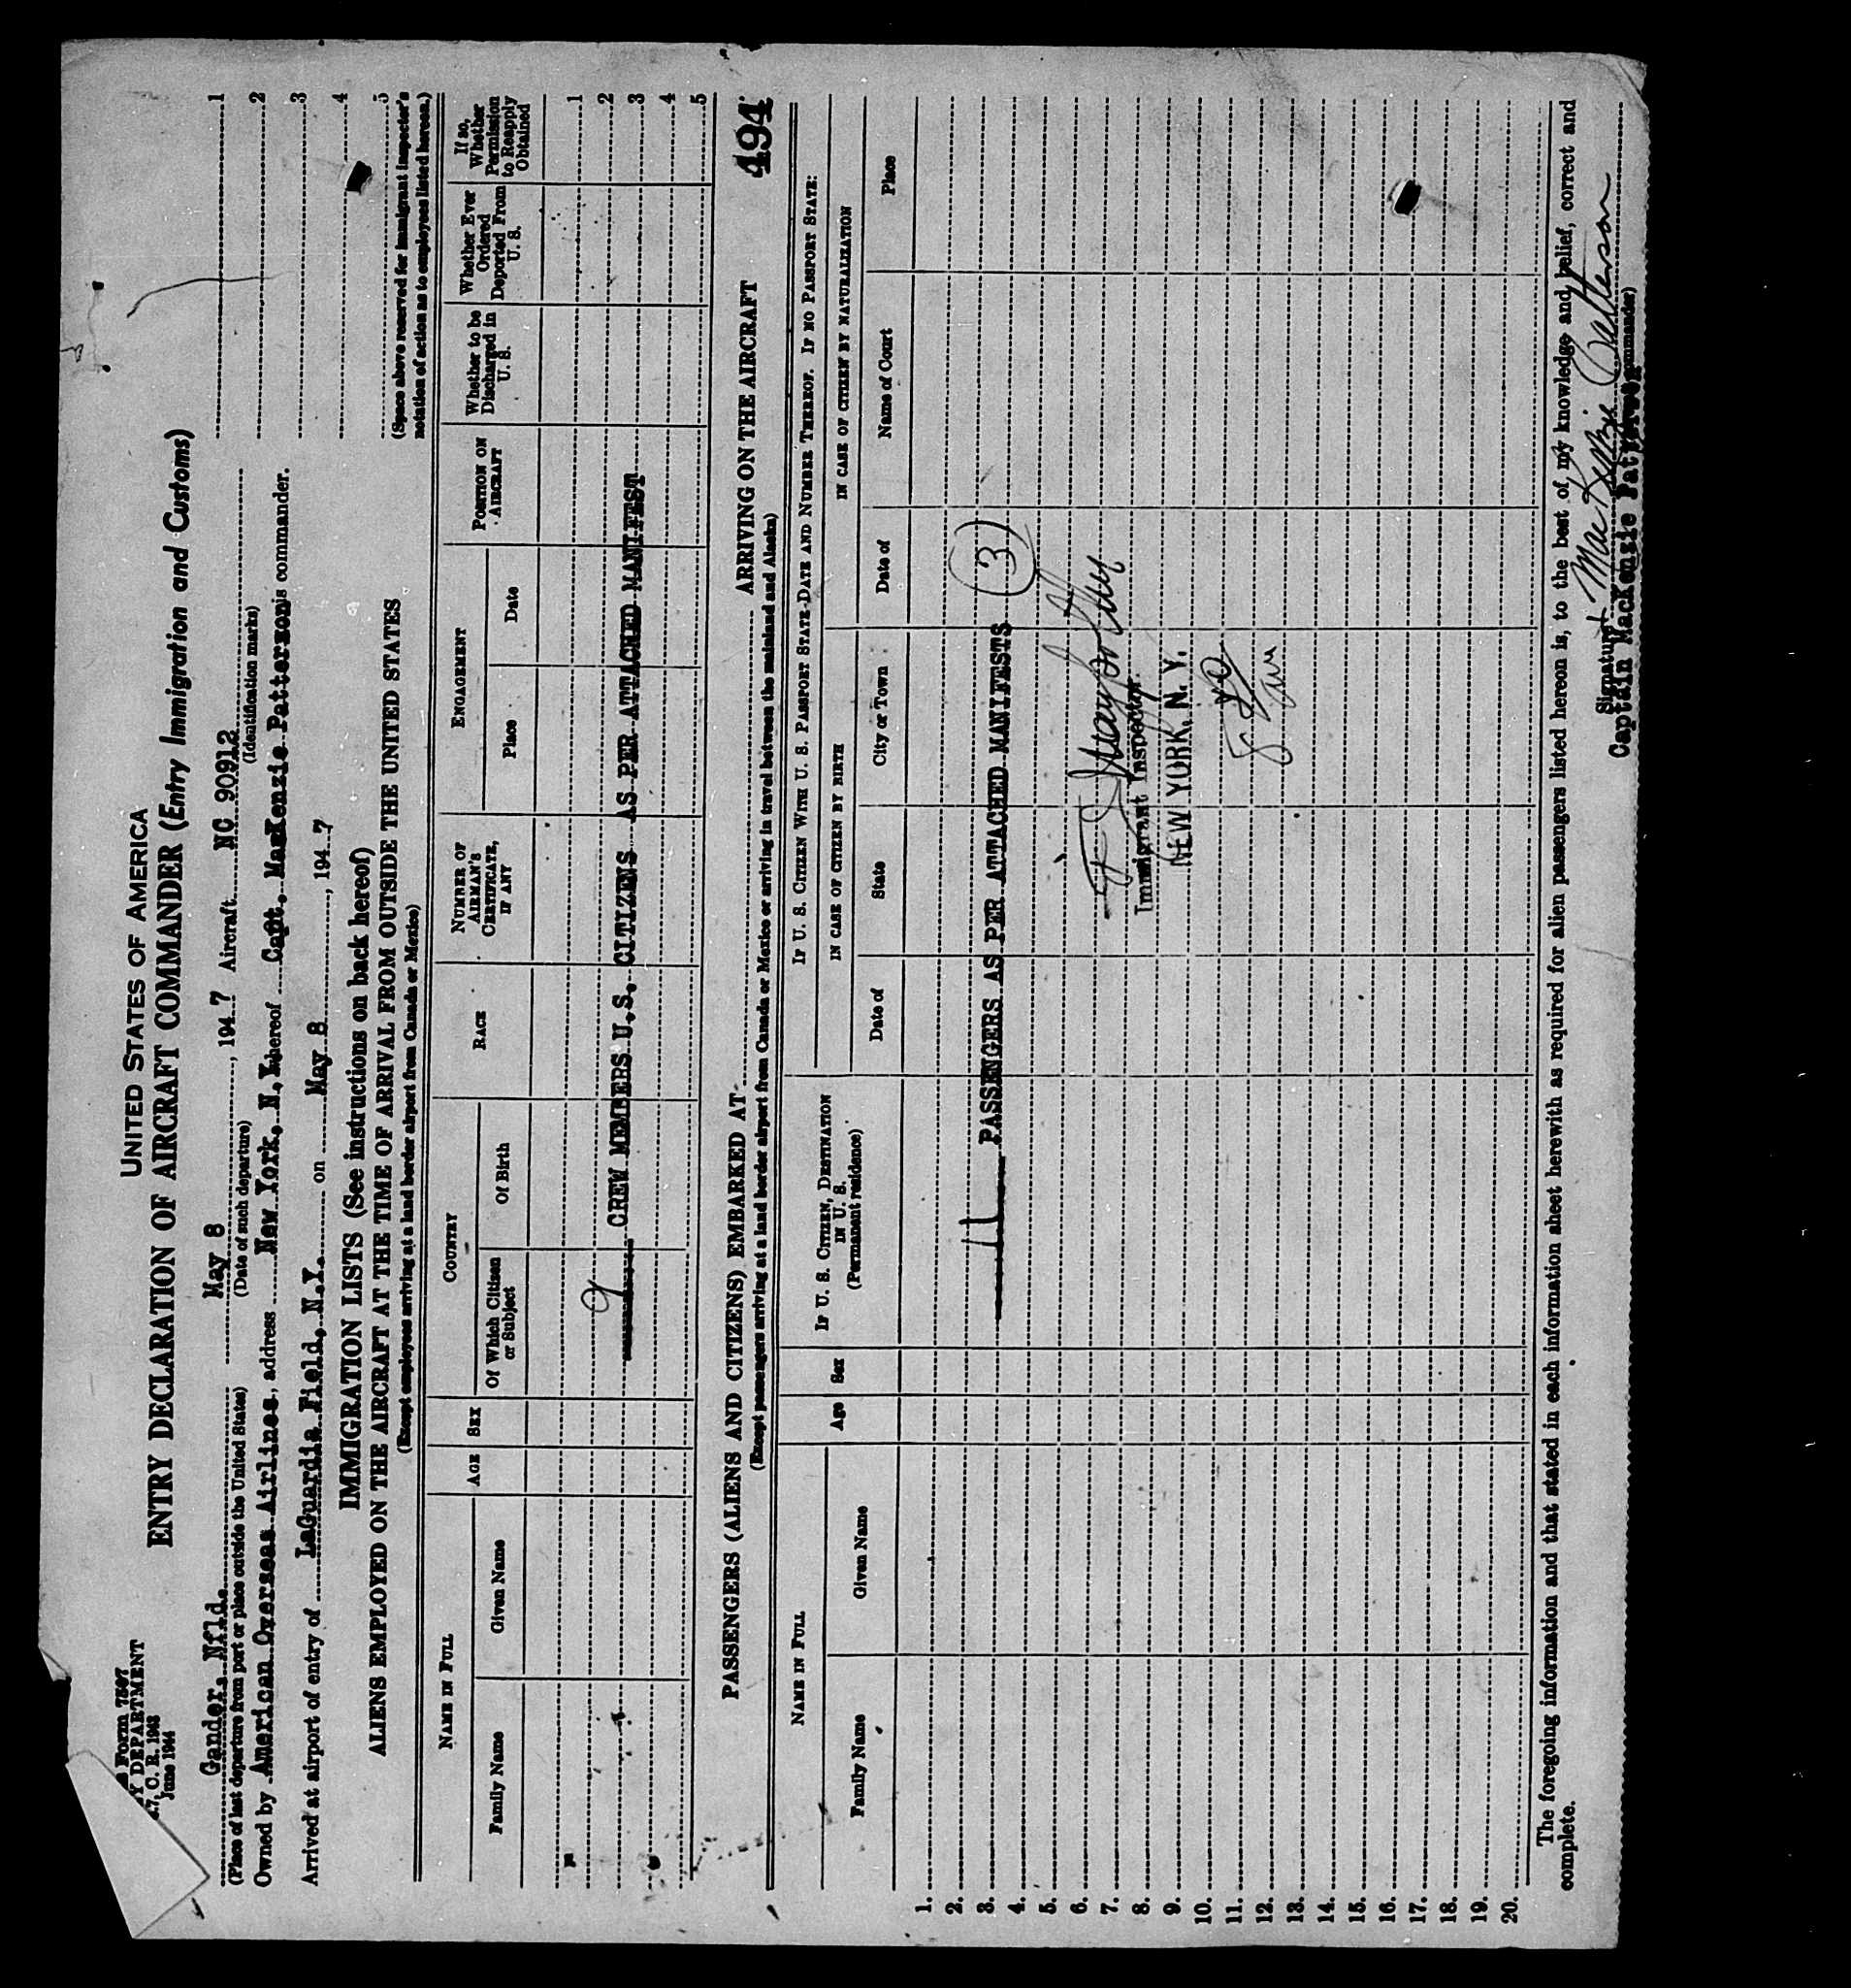 UNITED STATES OF AMERICA
Form 7507
Y DEPARTMENT
C. R. 1943
June 1944
ENTRY DECLARATION OF AIRCRAFT COMMANDER (Entry Immigration and Customs)
Gander, Nfld. May 8, 1947 Aircraft NC 90912
(Place of last departure from port or place outside the United States) (Date of such departure) (Identification marks)
Owned by American Overseas Airlines, address New York, N.Y. whereof Capt. MacKenzie Patterson is commander.
Arrived at airport of entry of LaGuardia Field, N.Y. on May 8, 1947
1
2
3
4
5
(Space above reserved for immigrant inspector's
notation of action as to employees listed hereon.)
IMMIGRATION LISTS (See instructions on back hereof)
ALIENS EMPLOYED ON THE AIRCRAFT AT THE TIME OF ARRIVAL FROM OUTSIDE THE UNITED STATES
(Except employees arriving at a land border airport from Canada or Mexico)
NAME IN FULL
Family Name Given Name
AGE
SEX
COUNTRY
Of Which Citizen or Subject Of Birth
RACE
NUMBER OF AIRMAN'S CERTIFICATE, IF ANY
ENGAGEMENT
Place Date
POSITION ON AIRCRAFT
Whether to be Discharged in U. S.
Whether Ever Ordered Deported From U. S.
If so, Whether Permission to Reapply Obtained
1
2
9 CREW MEMBERS U.S. CITIZENS AS PER ATTACHED MANIFEST 3
4
5
494
PASSENGERS (ALIENS AND CITIZENS) EMBARKED AT ARRIVING ON THE AIRCRAFT
(Except passengers arriving at a land border airport from Canada or Mexico or arriving in travel between the mainland and Alaska)
NAME IN FULL
Family Name Given Name
Age
Sex
IF U. S. CITIZEN, DESTINATION IN U. S.
(Permanent residence)
IF U. S. CITIZEN WITH U. S. PASSPORT STATE-DATE AND NUMBER THEREOF. IF NO PASSPORT STATE:
IN CASE OF CITIZEN BY BIRTH
Date of State City or Town
IN CASE OF CITIZEN BY NATURALIZATION
Date of Name of Court Place
1.
2.
3. PASSENGERS AS PER ATTACHED MANIFESTS (3)
4.
5.
6.
7.
8. Immigrant Inspector.
9. NEW YORK, N. Y.
10.
11.
12.
13.
14.
15.
16.
17.
18.
19.
20.
The foregoing information and that stated in each information sheet herewith as required for alien passengers listed hereon is, to the best of my knowledge and belief, correct and
complete.
Signature MacKenzie Patterson
Captain MacKenzie Patterson